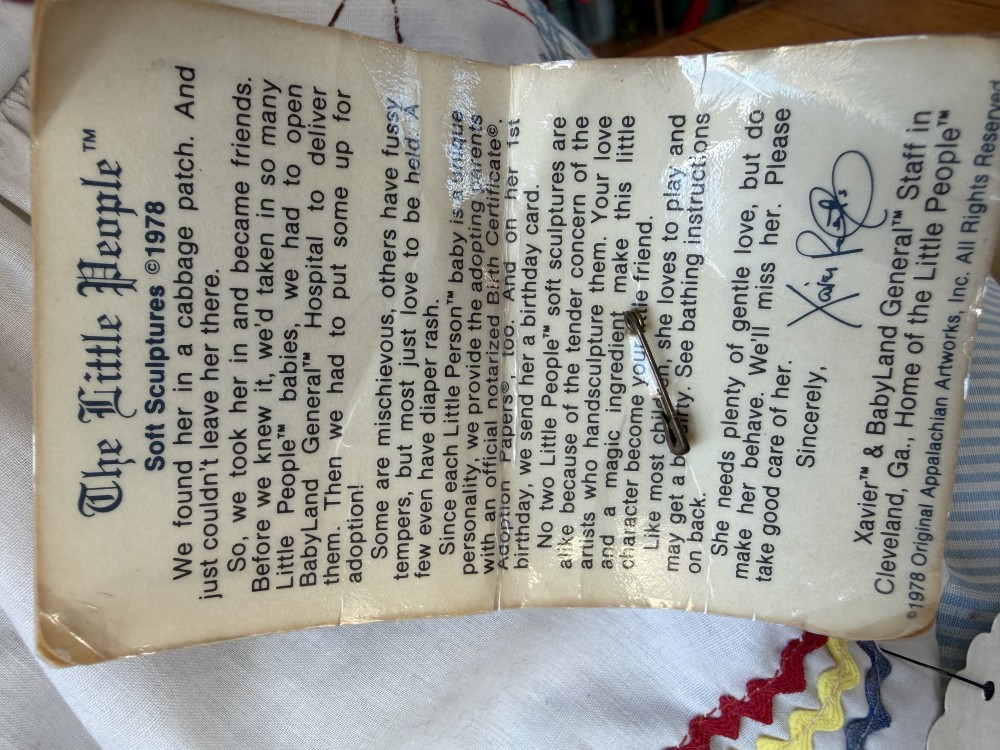 The Little People™
Soft Sculptures ©1978
We found her in a cabbage patch. And
just couldn't leave her there.
So, we took her in and became friends.
Before we knew it, we'd taken in so many
Little People™ babies, we had to open
BabyLand General™ Hospital to deliver
them. Then we had to put some up for
adoption!
Some are mischievous, others have fussy
tempers, but most just love to be held. A
few even have diaper rash.
Since each Little Person™ baby is a unique
personality, we provide the adopting parents
with an official notarized Birth Certificate©,
Adoption Papers© too. And on her 1st
birthday, we send her a birthday card.
No two Little People™ soft sculptures are
alike because of the tender concern of the
artists who handsculpture them. Your love
and a magic ingredient make this little
character become your friend.
Like most she loves to play and
may get a See bathing instructions
on back.
She needs plenty of gentle love, but do
make her behave. We'll miss her. Please
take good care of her.
Sincerely,
Xavier
Xavier™ & BabyLand General™ Staff in
Cleveland, Ga., Home of the Little People™
©1978 Original Appalachian Artworks, Inc. All Rights Reserved